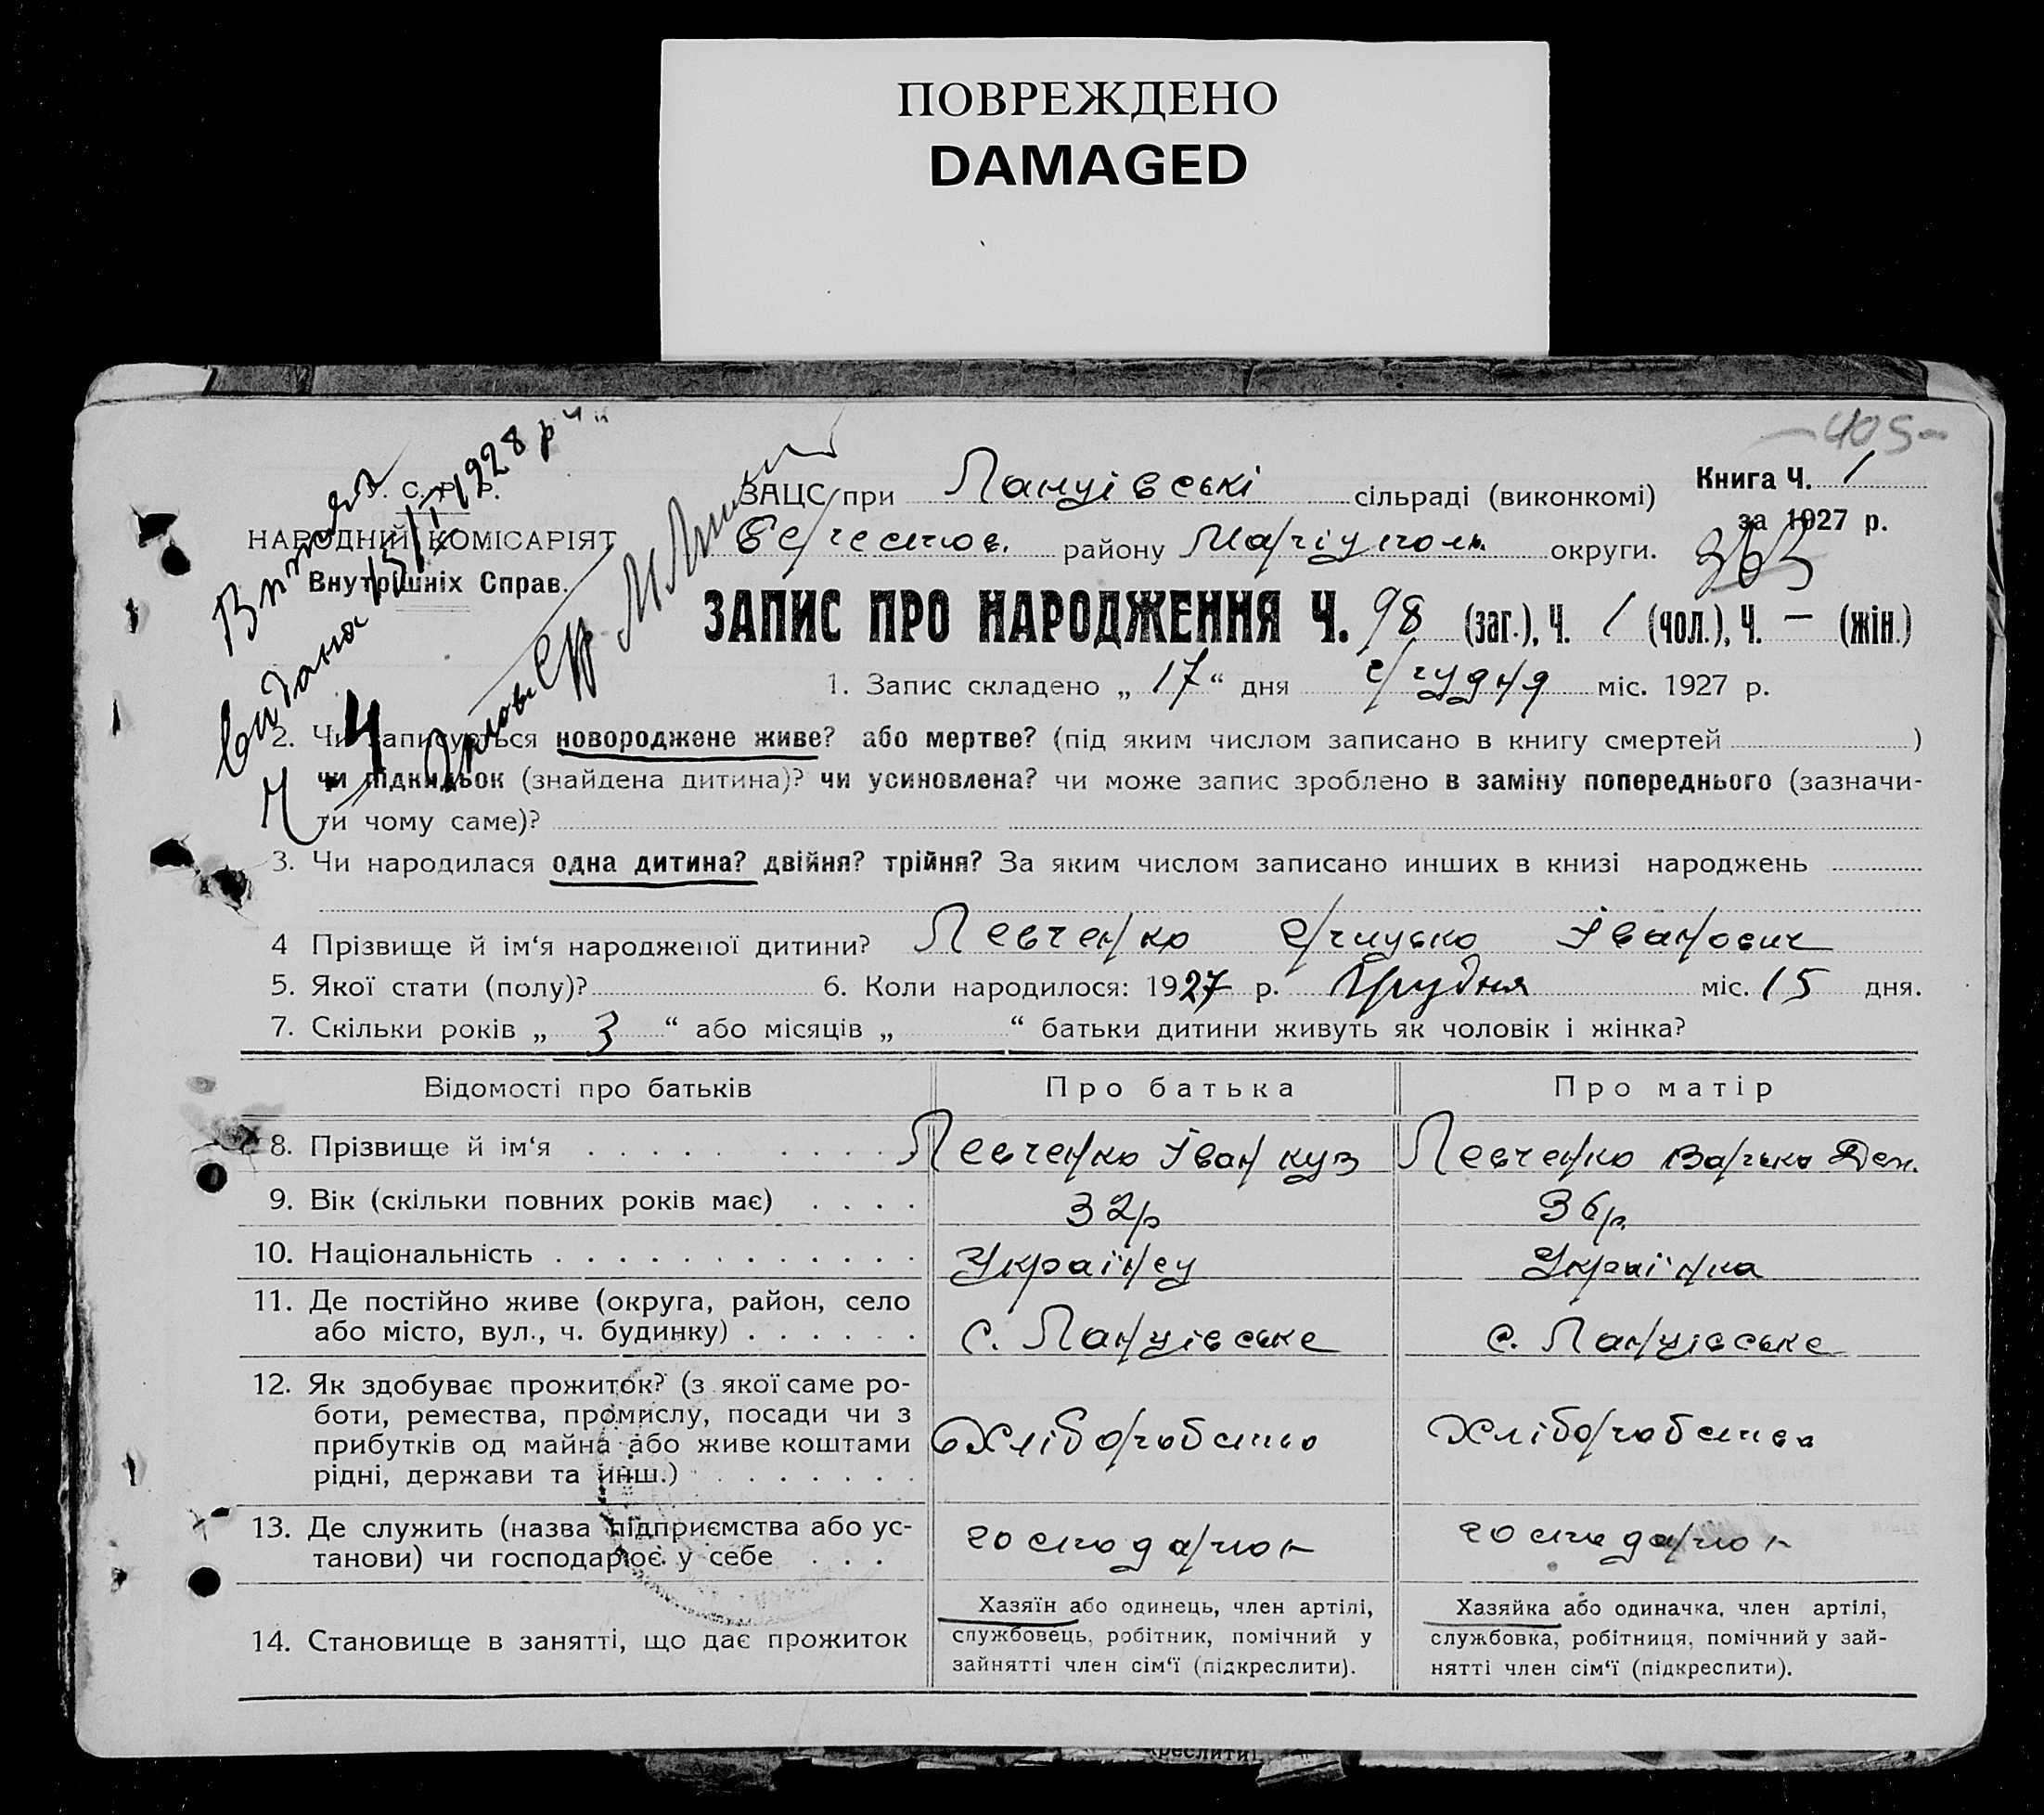 ПОВРЕЖДЕНО
DAMAGED
- 405 -
У. С. Р. Р.
НАРОДНИЙ КОМІСАРІЯТ
Внутрішніх Справ.
ЗАЦС при Ланцівські сільраді (виконкомі)
Книга Ч. 1
за 1927 р.
району Маріуполь. округи.
ЗАПИС ПРО НАРОДЖЕННЯ Ч. 98 (заг.), Ч. 1 (чол.), Ч. – (жін.)
1. Запис складено „ 17 “ дня грудня міс. 1927 р.
2. Чи записується новороджене живе? або мертве? (під яким числом записано в книгу смертей )
чи підкидьок (знайдена дитина)? чи усиновлена? чи може запис зроблено в заміну попереднього (зазначи-
ти чому саме)?
3. Чи народилася одна дитина? двійня? трійня? За яким числом записано инших в книзі народжень
4 Прізвище й ім‘я народженої дитини? Левченко Іванович
5. Якої стати (полу)? 6. Коли народилося: 1927 р. Грудня міс. 15 дня.
7. Скільки років „ 3 “ або місяців „ “ батьки дитини живуть як чоловік і жінка?
Відомості про батьків Про батька Про матір
8. Прізвище й ім‘я Левченко Іван куз Левченко Варька
9. Вік (скільки повних років має) 32р 36р.
10. Національність Українец Українка
11. Де постійно живе (округа, район, село
або місто, вул., ч. будинку) с. Ланцівське с. Ланцівське
12. Як здобуває прожиток? (з якої саме ро-
боти, ремества, промислу, посади чи з
прибутків од майна або живе коштами
рідні, держави та инш.) Хліборобство Хліборобства
13. Де служить (назва підприємства або ус-
танови) чи господарює у себе
14. Становище в занятті, що дає прожиток
Хазяїн або одинець, член артілі,
службовець, робітник, помічний у
зайнятті член сім‘ї (підкреслити).
Хазяйка або одиначка, член артілі,
службовка, робітниця, помічний у зай-
нятті член сім‘ї (підкреслити).